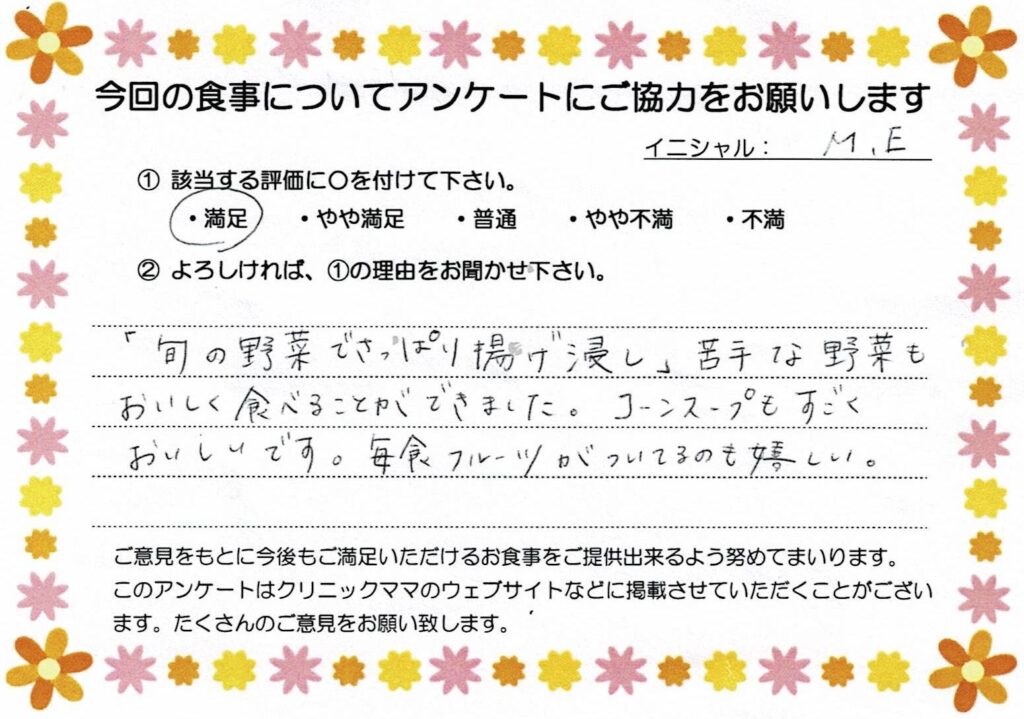 今回の食事についてアンケートにご協力をお願いします
イニシャル： M.E
① 該当する評価に〇を付けて下さい。
・満足 ・やや満足 ・普通 ・やや不満 ・不満
② よろしければ、①の理由をお聞かせ下さい。
「旬の野菜でさっぱり揚げ浸し」苦手な野菜も
おいしく食べることができました。コーンスープもすごく
おいしいです。毎食フルーツがついてるのも嬉しい。
ご意見をもとに今後もご満足いただけるお食事をご提供出来るよう努めてまいります。
このアンケートはクリニックママのウェブサイトなどに掲載させていただくことがござい
ます。たくさんのご意見をお願い致します。